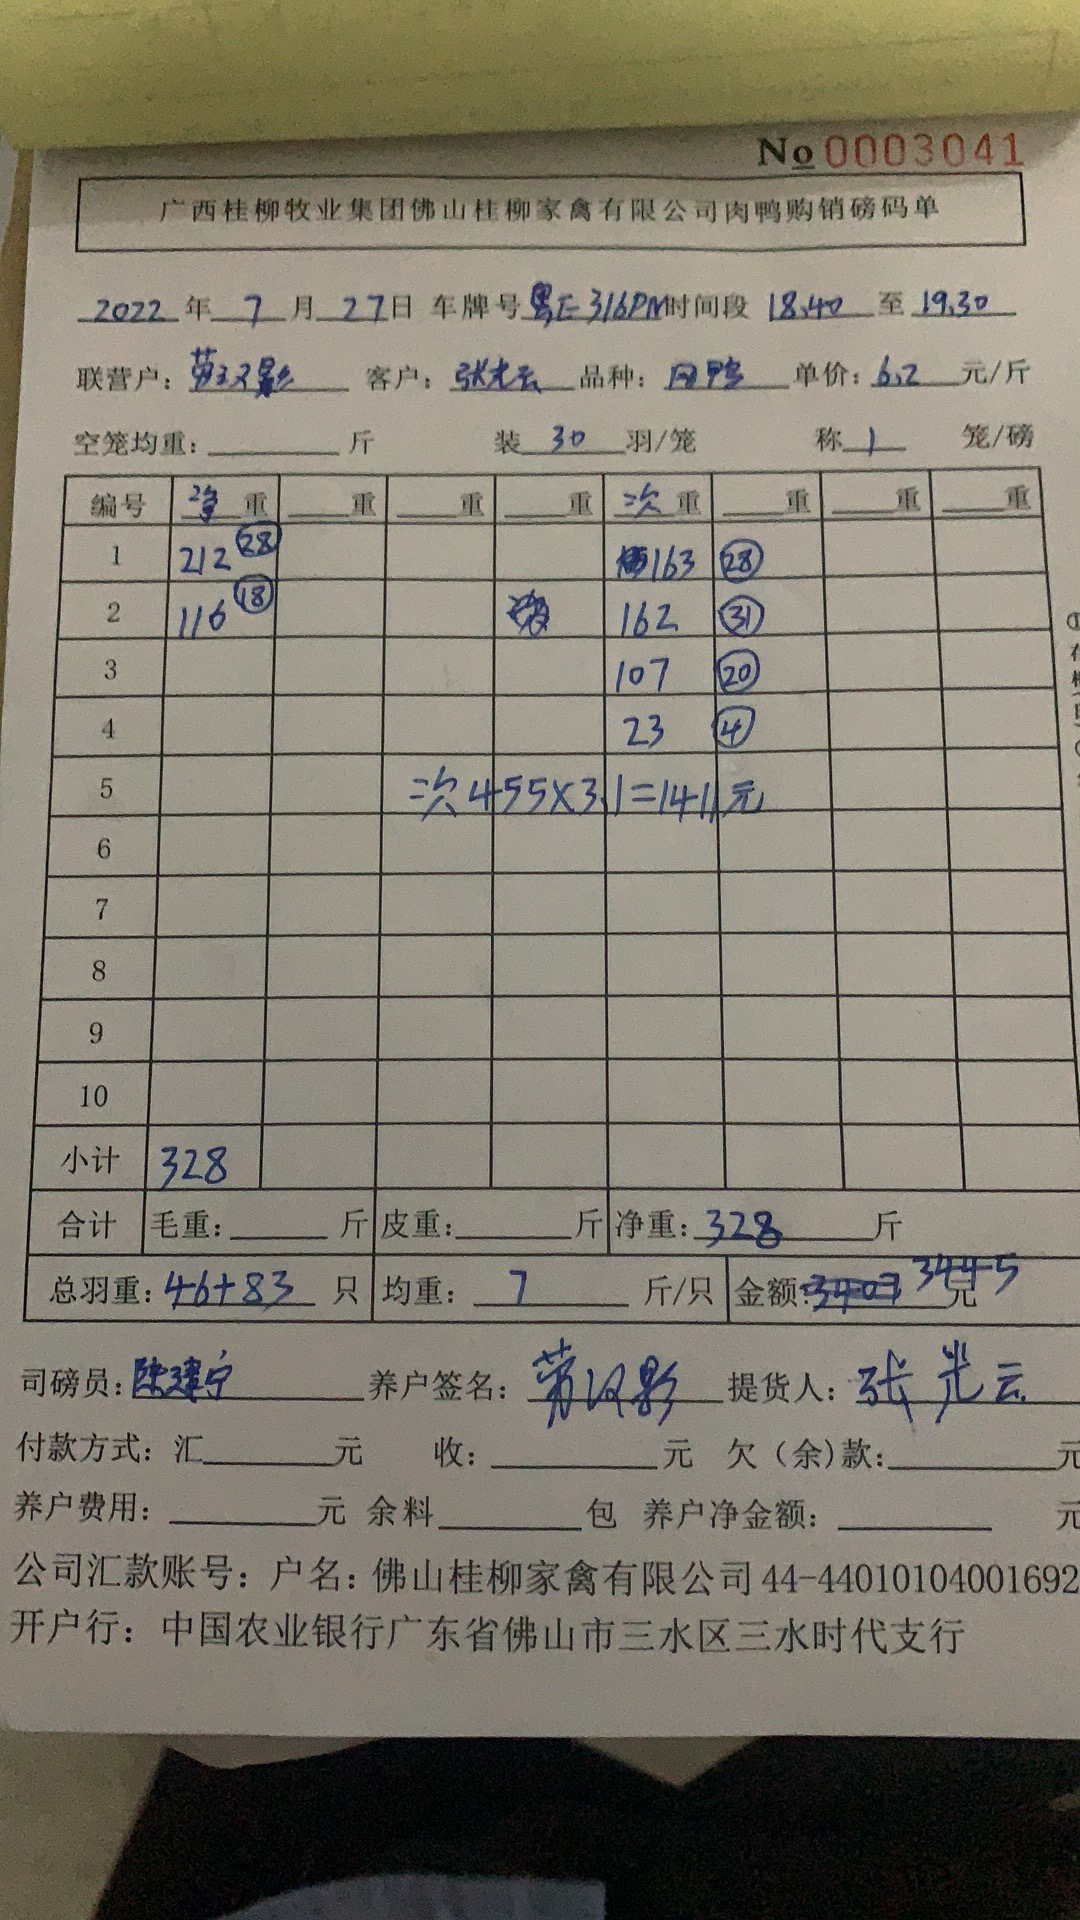 No 0003041
广西桂柳牧业集团佛山桂柳家禽有限公司肉鸭购销磅码单
2022 年 7 月 27 日 车牌号 粤E316PM 时间段 18.40 至 19.30
联营户: 劳汉影 客户: 张光云 品种: 肉鸭 单价: 6.2 元/斤
空笼均重: 斤 装 30 羽/笼 称 1 笼/磅
编号 净重 重 重 重 次重 重 重 重
1 212 28 163 28
2 116 18 162 31
3 107 20
4 23 4
5 次455X3.1=1411元
6
7
8
9
10
小计 328
合计 毛重: 斤 皮重: 斤 净重: 328 斤
总羽重: 46+83 只 均重: 7 斤/只 金额: 3407 3445 元
司磅员: 陈建宁 养户签名: 劳汉影 提货人: 张光云
付款方式: 汇 元 收: 元 欠(余)款: 元
养户费用: 元 余料 包 养户净金额: 元
公司汇款账号: 户名: 佛山桂柳家禽有限公司 44-44010104001692
开户行: 中国农业银行广东省佛山市三水区三水时代支行